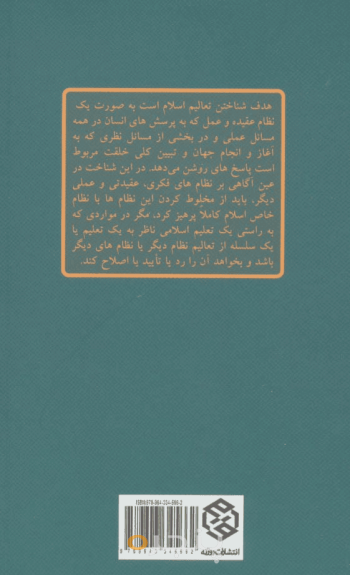 هدف شناختن تعالیم اسلام است به صورت یک
نظام عقیده و عمل که به پرسش های انسان در همه
مسائل عملی و در بخشی از مسائل نظری که به
آغاز و انجام جهان و تبیین کلی خلقت مربوط
است پاسخ های روشن می‌دهد. در این شناخت در
عین آگاهی بر نظام های فکری، عقیدتی و عملی
دیگر، باید از مخلوط کردن این نظام ها با نظام
خاص اسلام کاملا پرهیز کرد، مگر در مواردی که
به راستی یک تعلیم اسلامی ناظر به یک تعلیم یا
یک سلسله از تعالیم نظام دیگر یا نظام های دیگر
باشد و بخواهد آن را رد یا تأیید یا اصلاح کند.
انتشارات روزنه